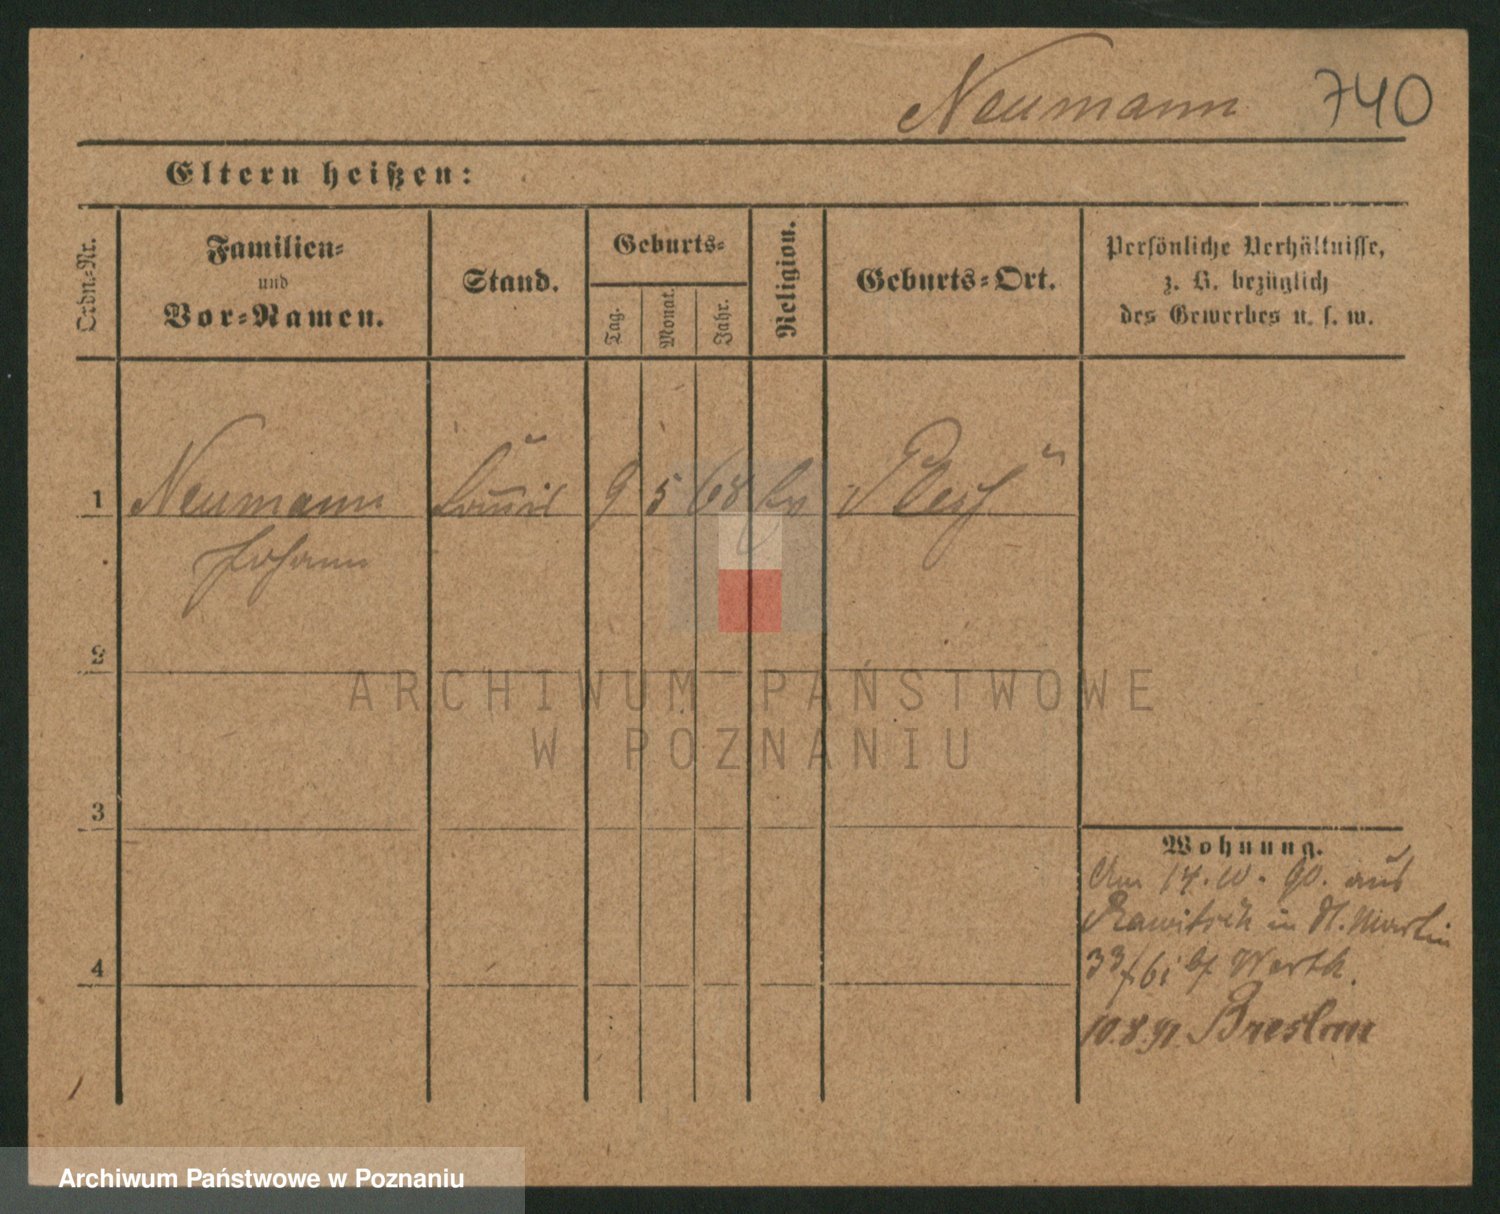 Neumann 740
Eltern heißen:
Ordn.=Nr.
Familien=
und
Vor=Namen.
Stand.
Geburts=
Tag.
Monat.
Jahr.
Religion.
Geburts=Ort.
Persönliche Verhältnisse,
z. B. bezüglich
des Gewerbes u. s. w.
1 Neumann 9 5 68
Johann
2
ARCHIWUM PAŃSTWOWE
W POZNANIU
3
4
Wohnung.
Am 14. 10. 90. aus
Rawitsch in St. Martin
33 Werth.
10.8.91. Breslau
Archiwum Państwowe w Poznaniu